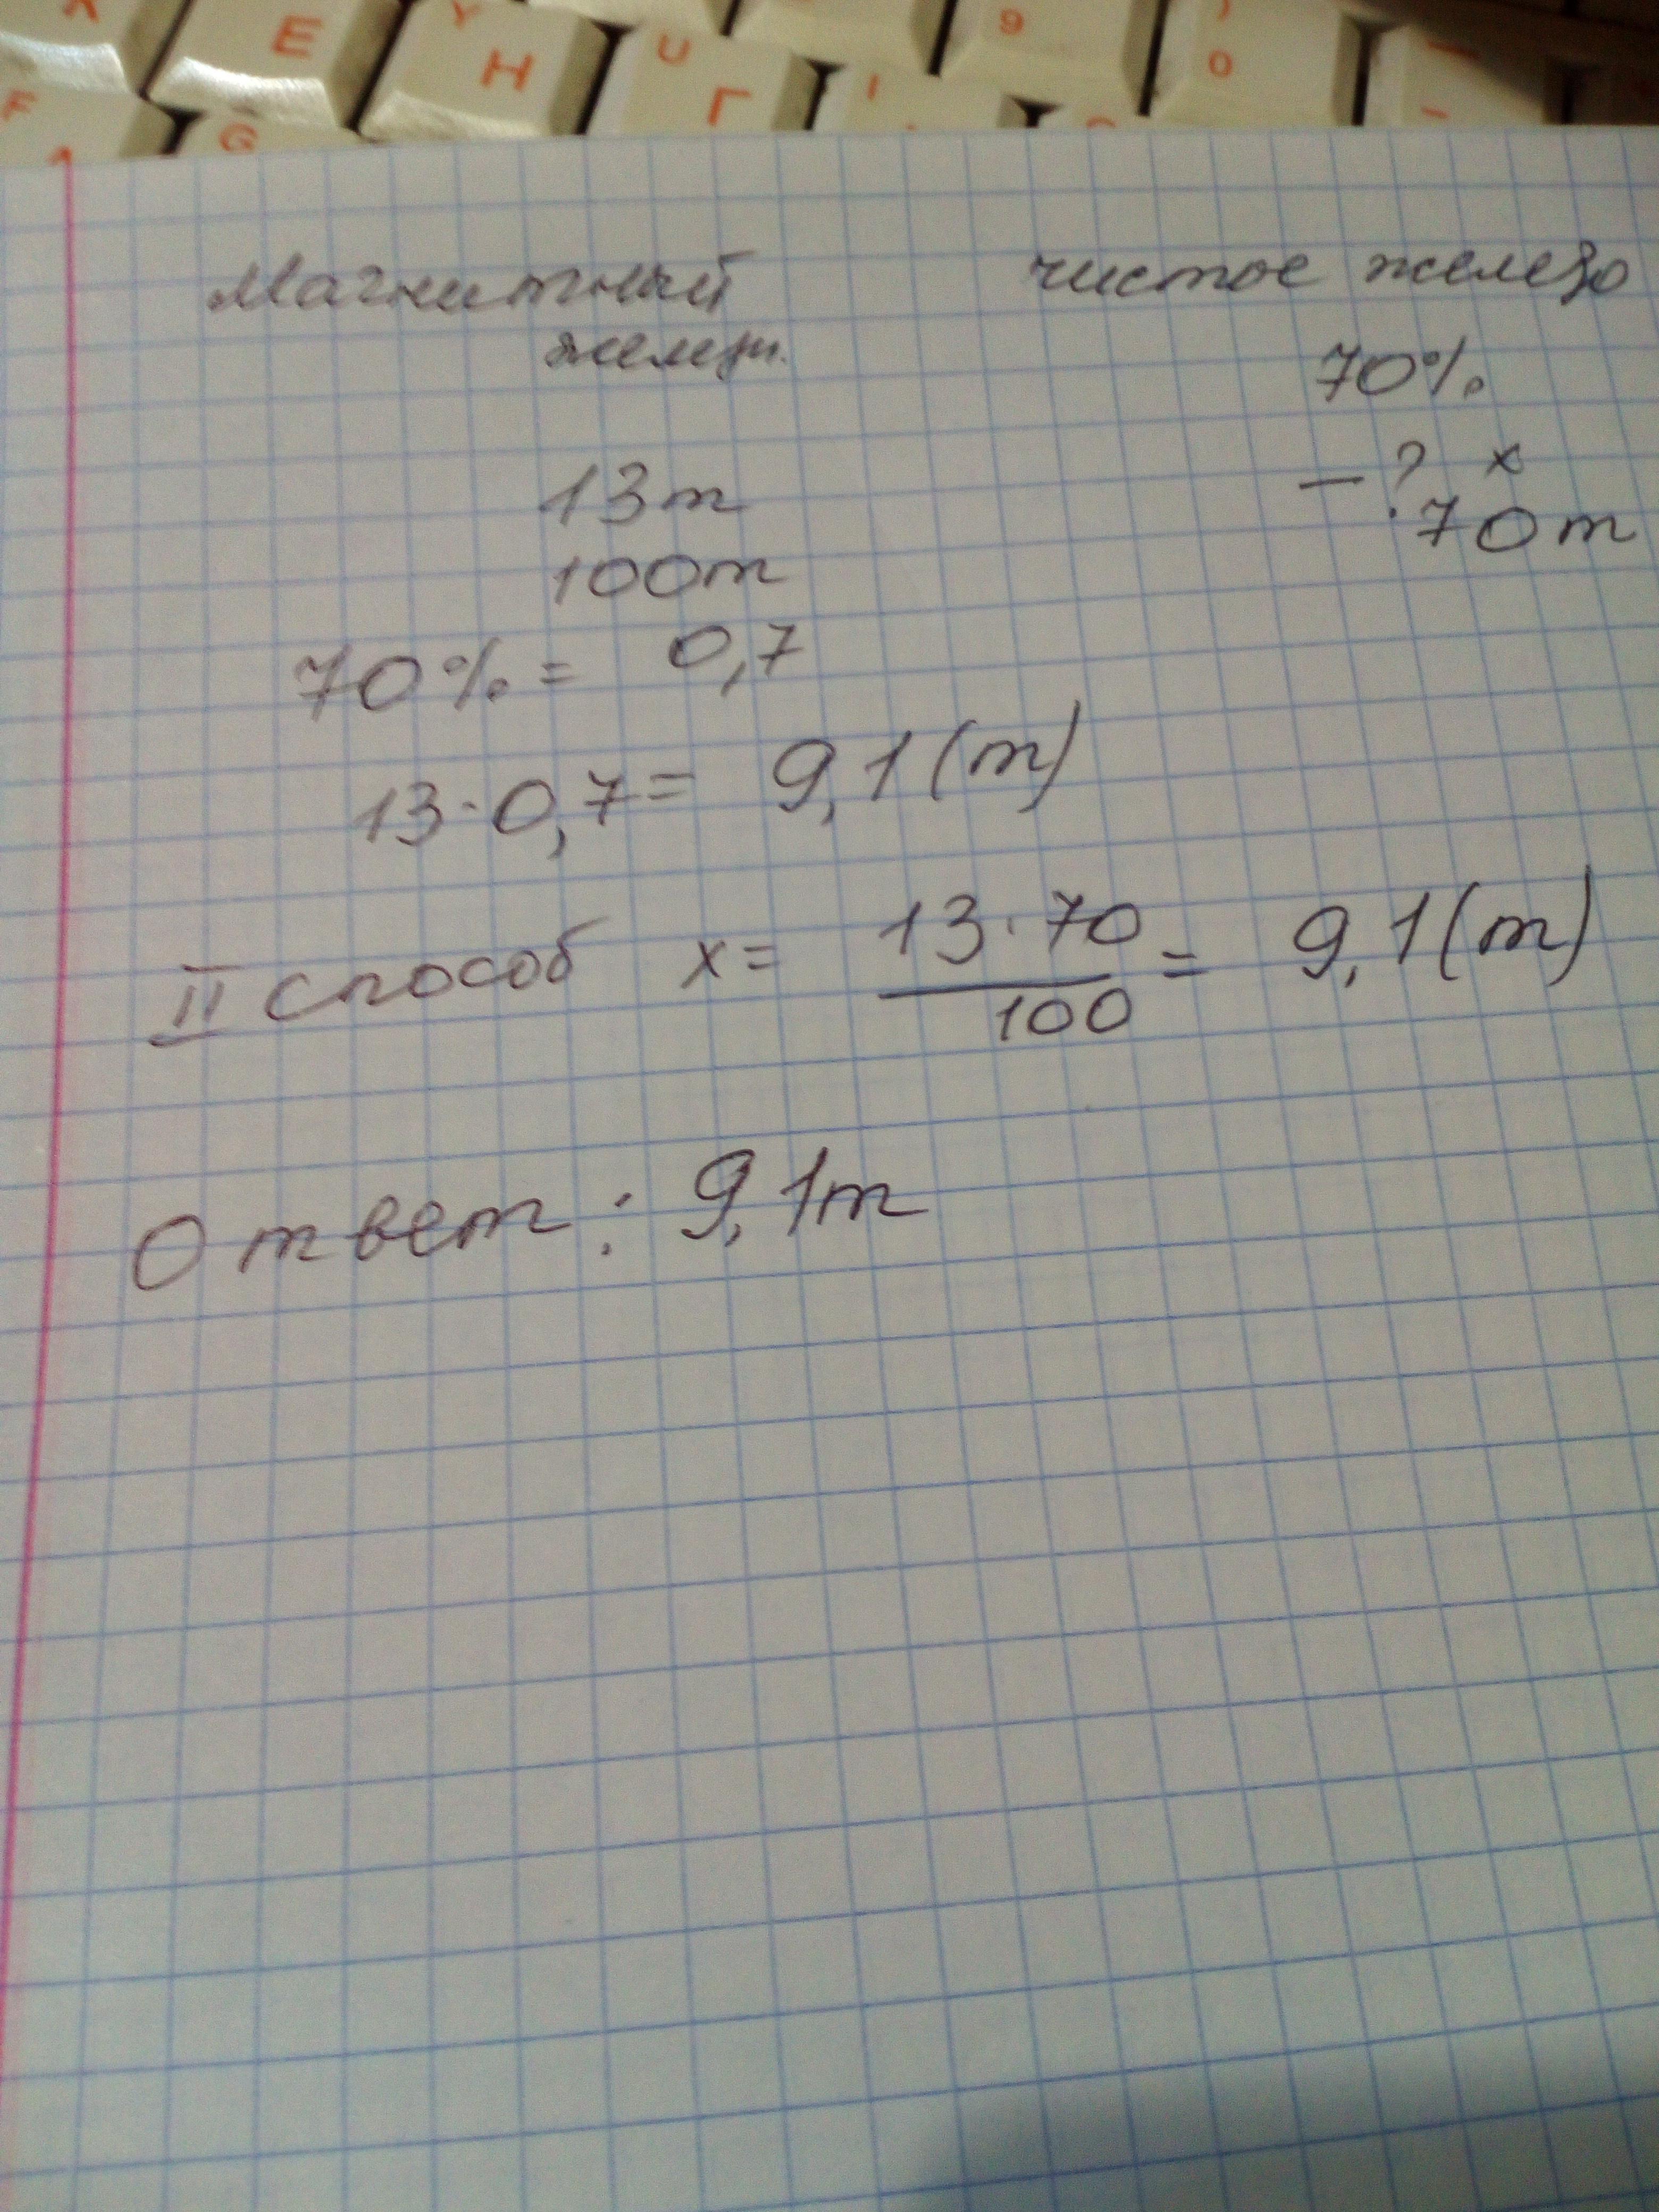 E
Y
H
U
Г
9
)
0
F
G
Магнитный
чистое железо
70%
13т
— ? x
100т
70т
70% = 0,7
13·0,7= 9,1(т)
II способ x= 13·70
100
= 9,1(т)
Ответ: 9,1т